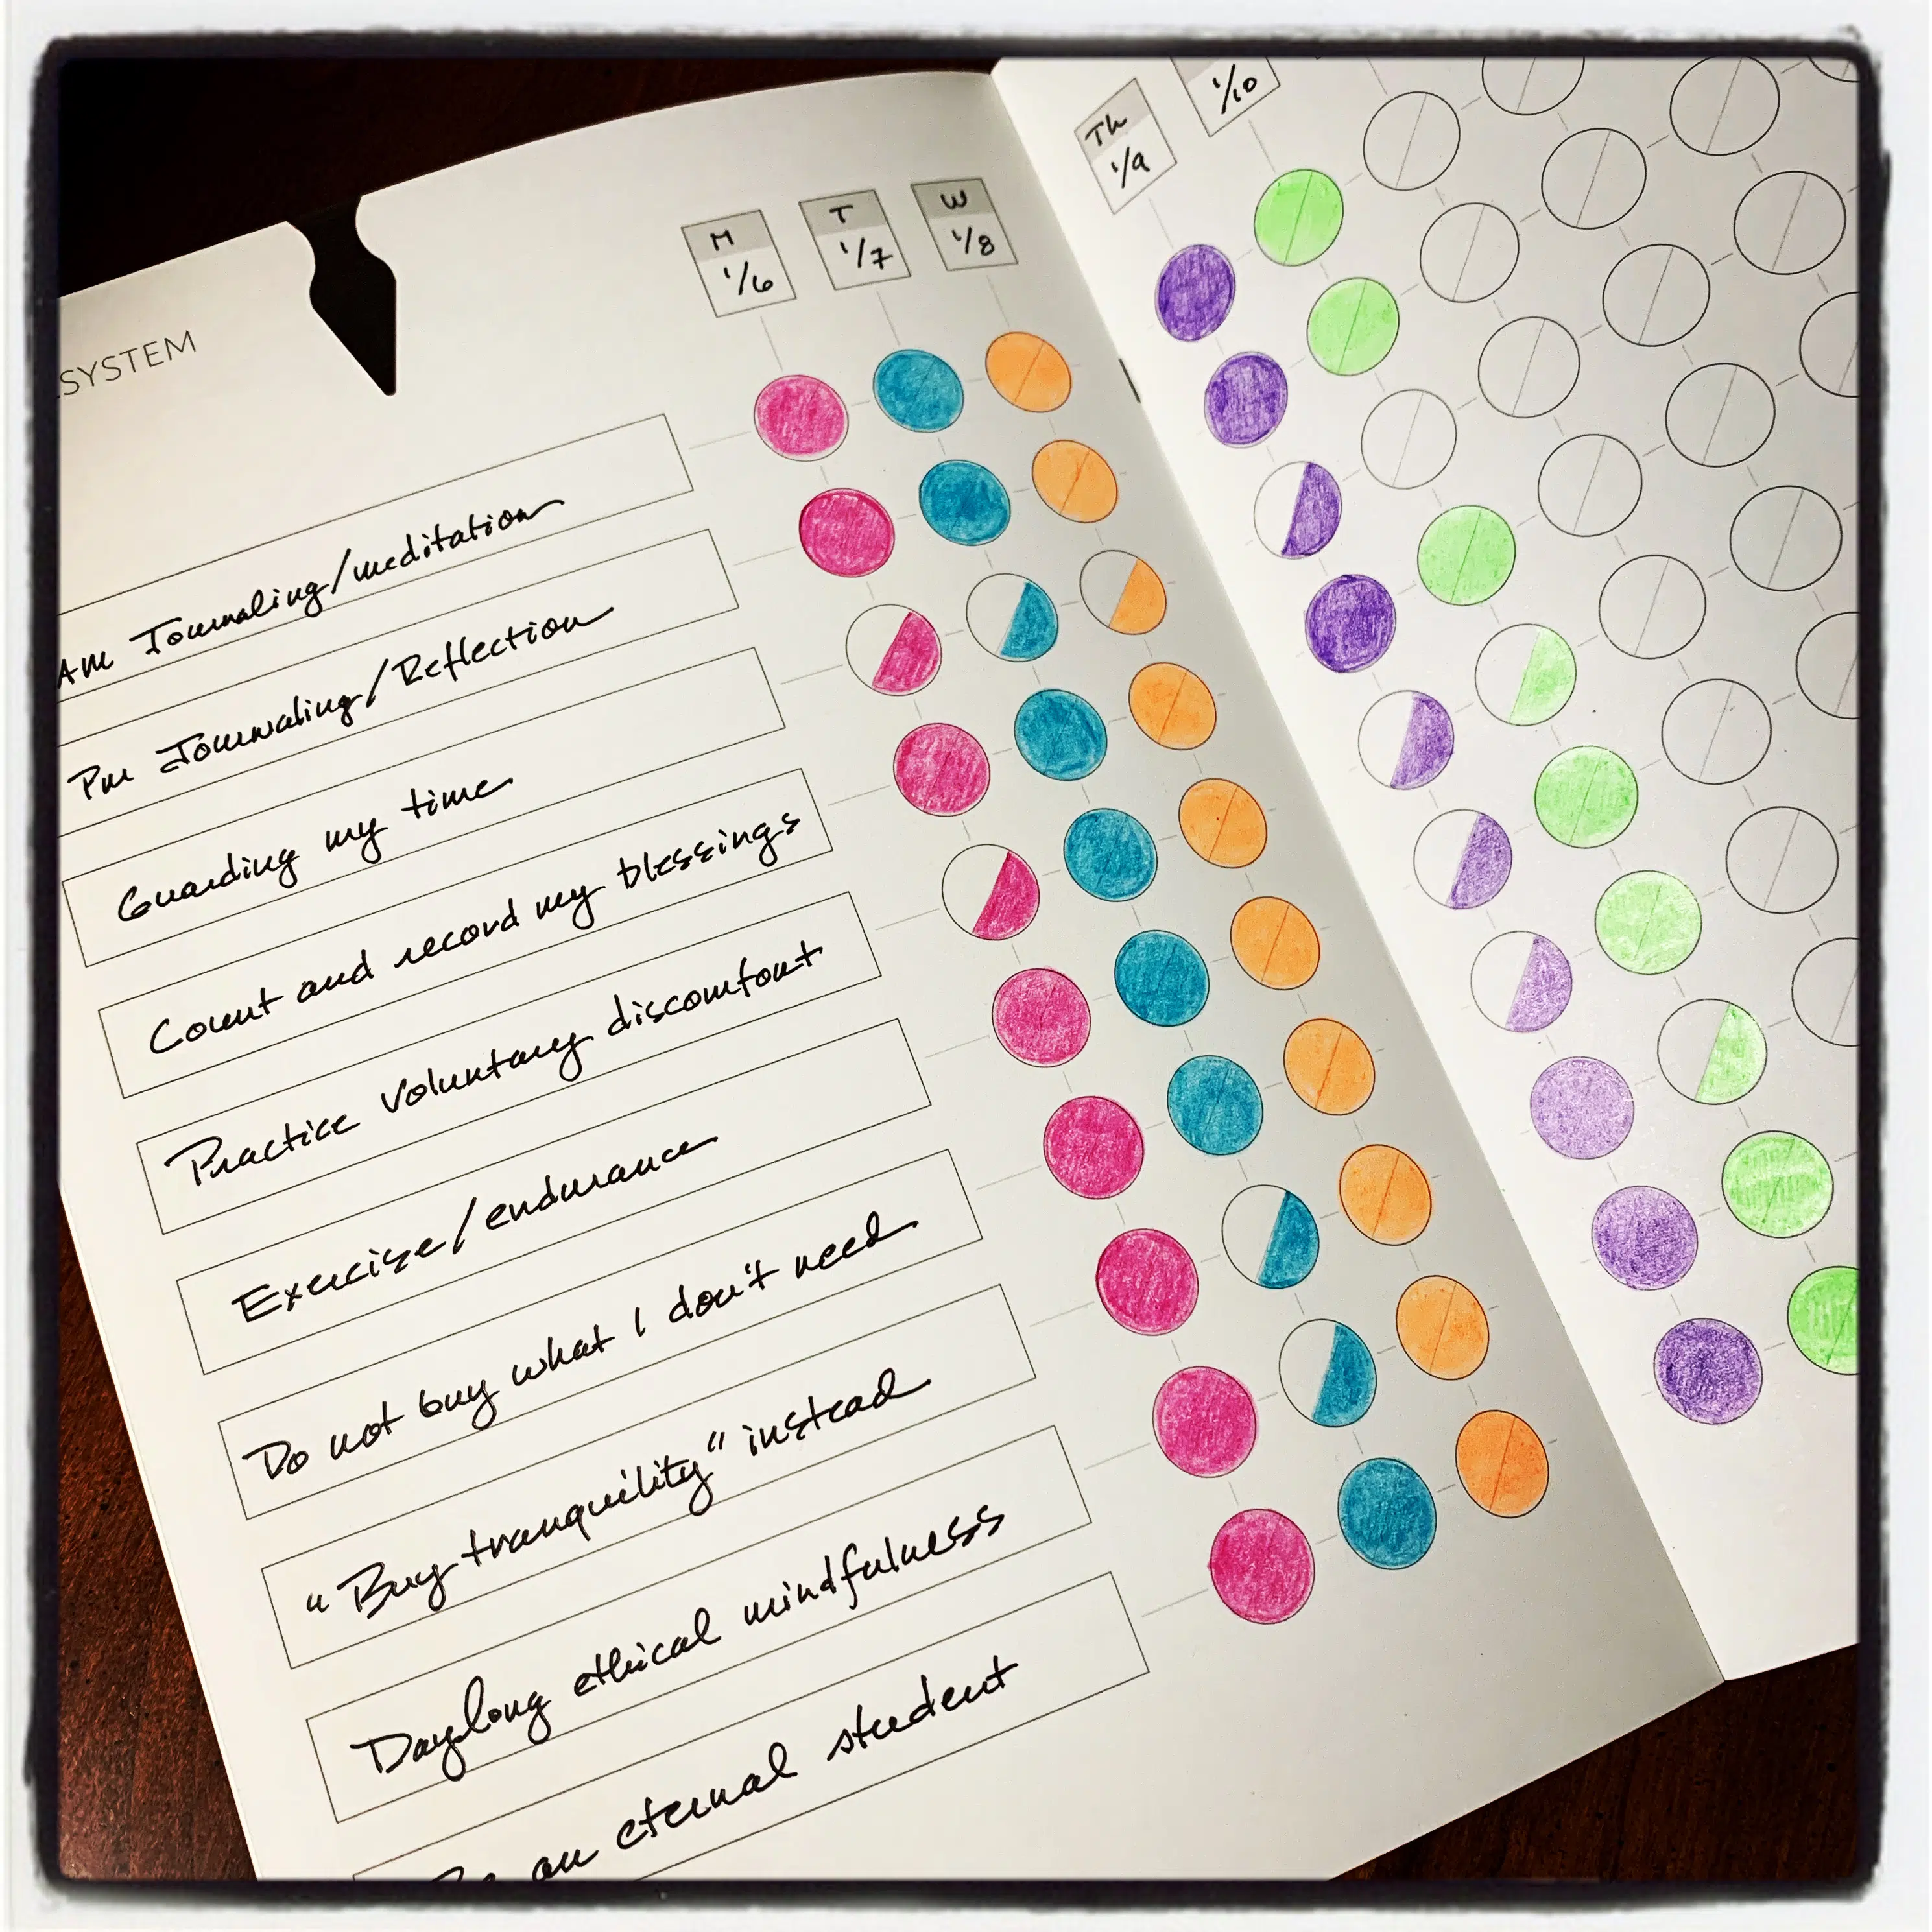 SYSTEM
M
1/6
T
1/7
W
1/8
Th
1/9
1/10
Am Journaling/meditation
Pm Journaling/Reflection
Guarding my time
Count and record my blessings
Practice voluntary discomfort
Exercise/endurance
Do not buy what I don't need
"Buy tranquility" instead
Daylong ethical mindfulness
an eternal student